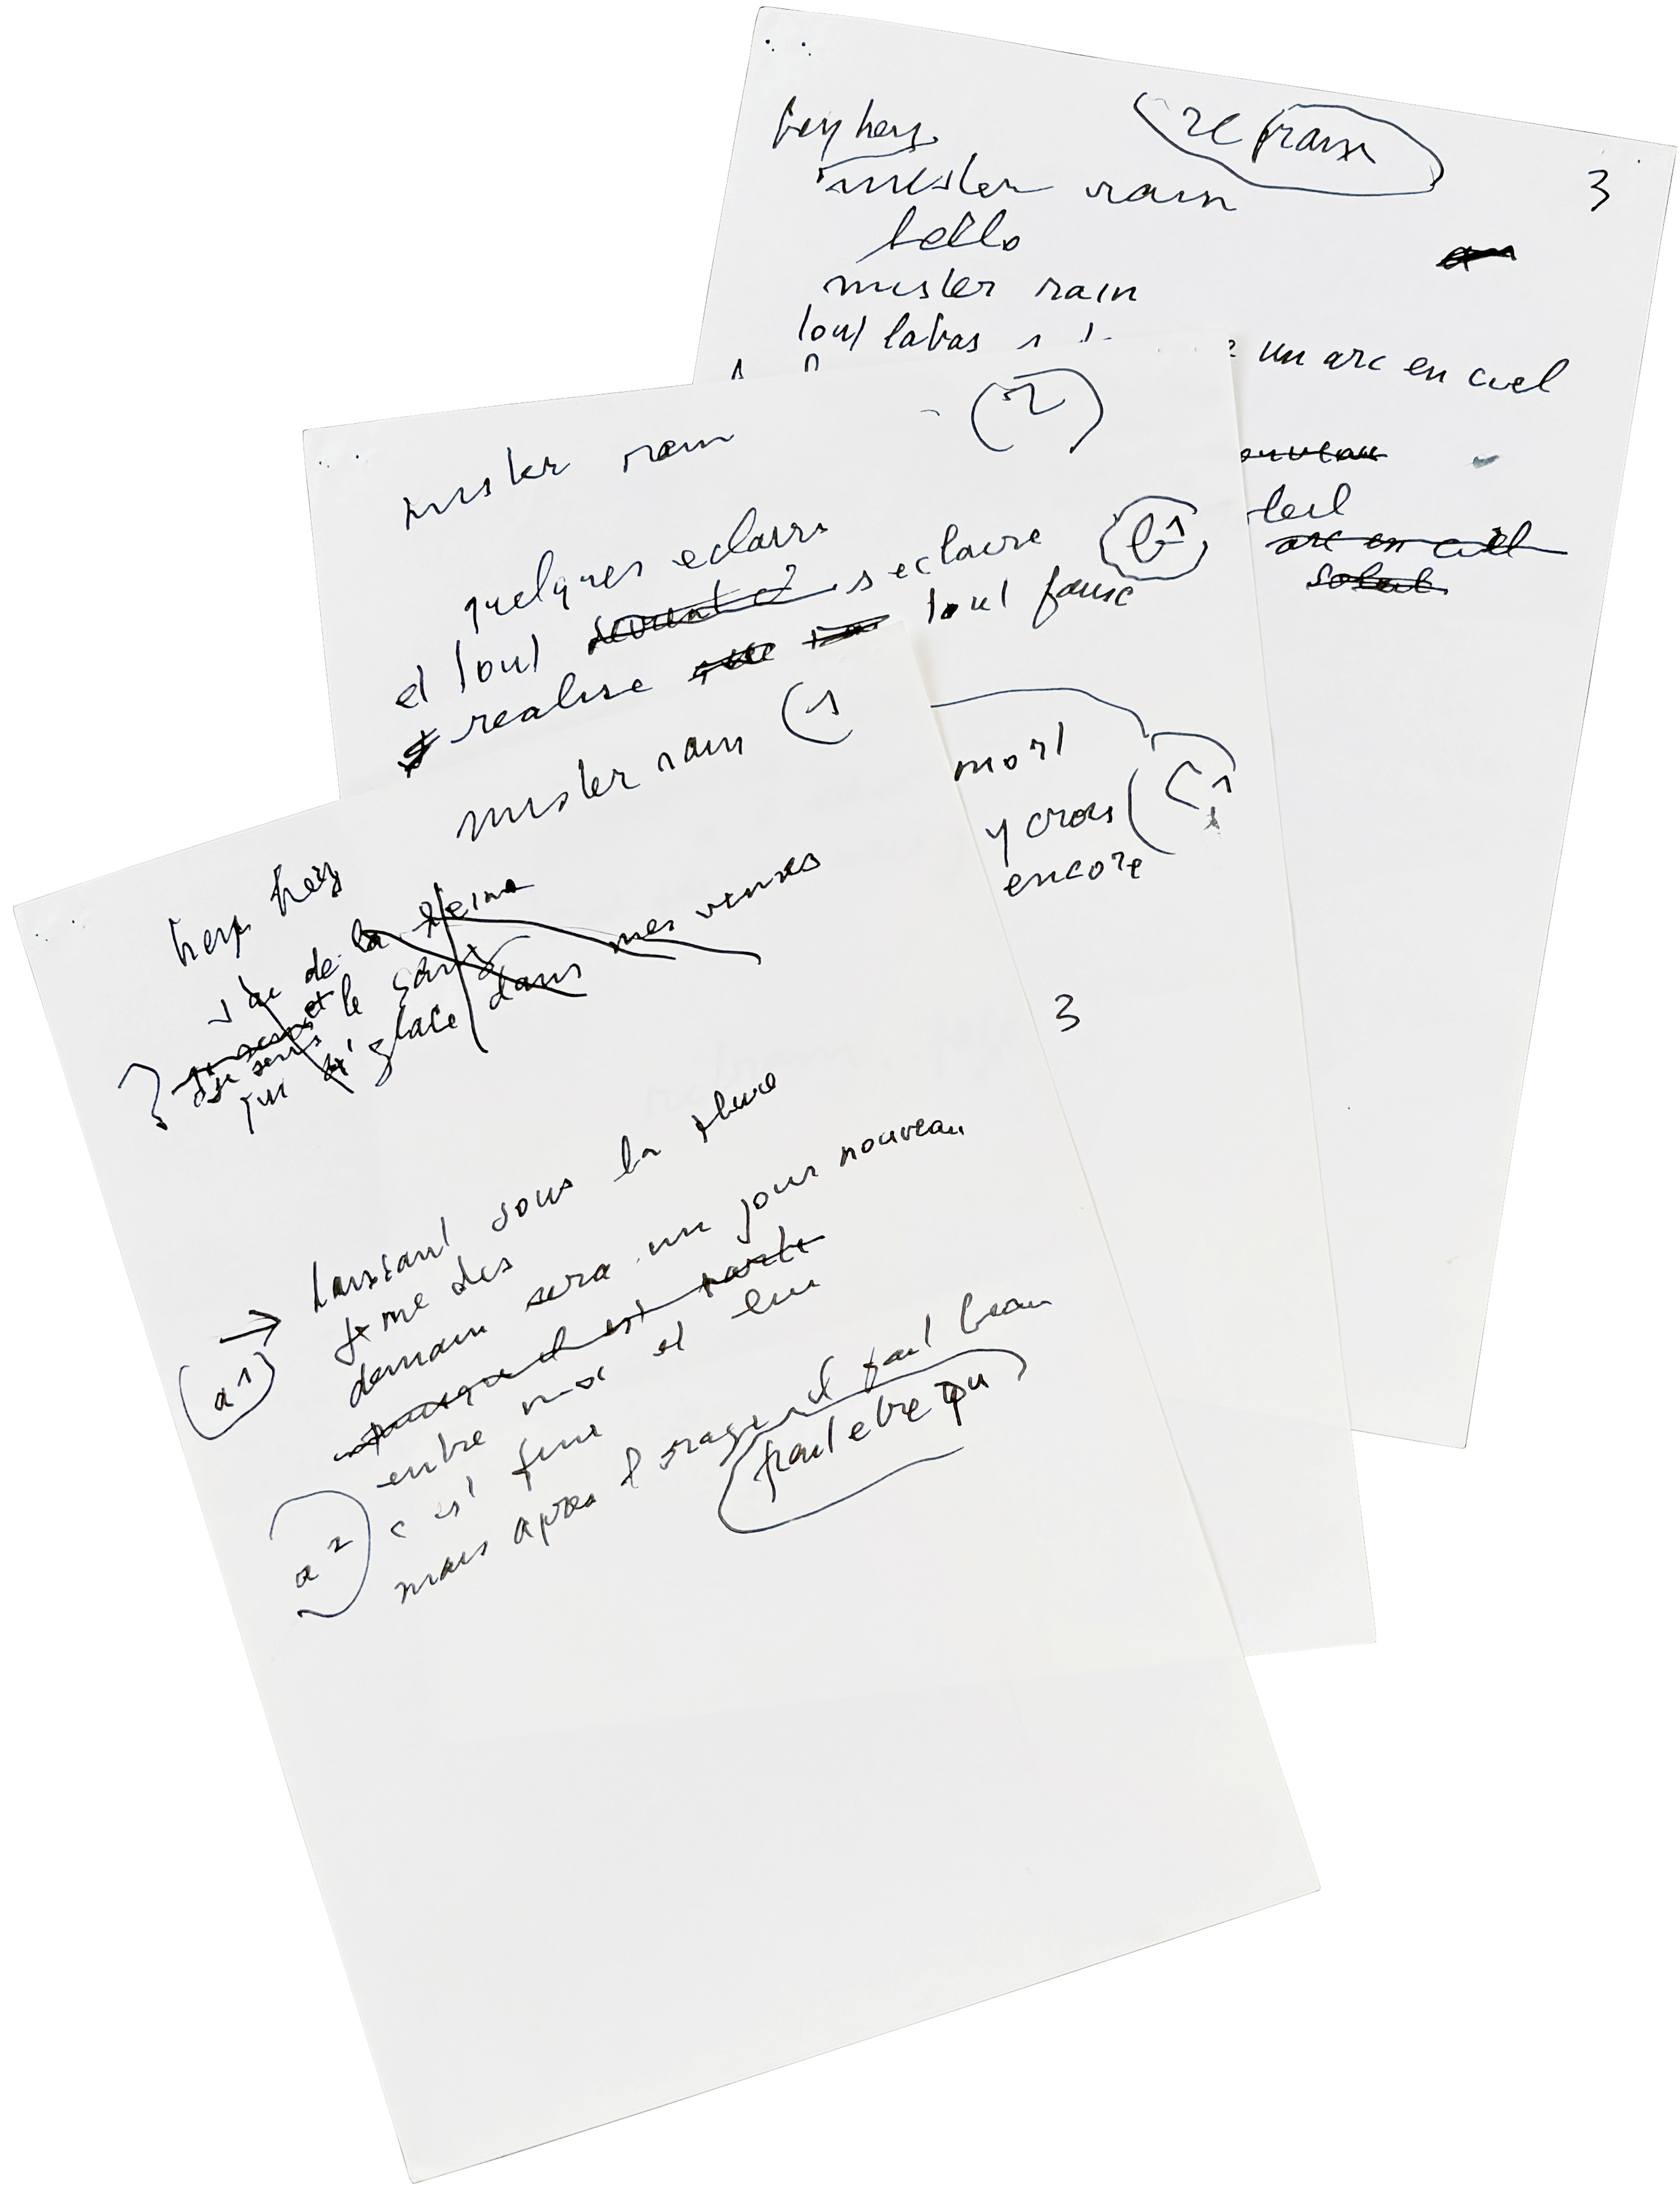 mister rain (1
hey hey
j'ai de la peine
et le sang
je sens
qui glace dans mes veines
(a1) → dansant sous la pluie
je me dis
demain sera un jour nouveau
puisque est partie
entre moi et lui
(a2) c est fini
mais apres l orage il fait beau
peut etre qu
mister rain (2)
quelques eclairs
et tout devient s eclaire (b1)
realise tout fausse
mort
y crois (C1
encore
3
hey hey refrain
mister rain 3
hello
mister rain
tout labas un arc en ciel
arc en ciel
soleil